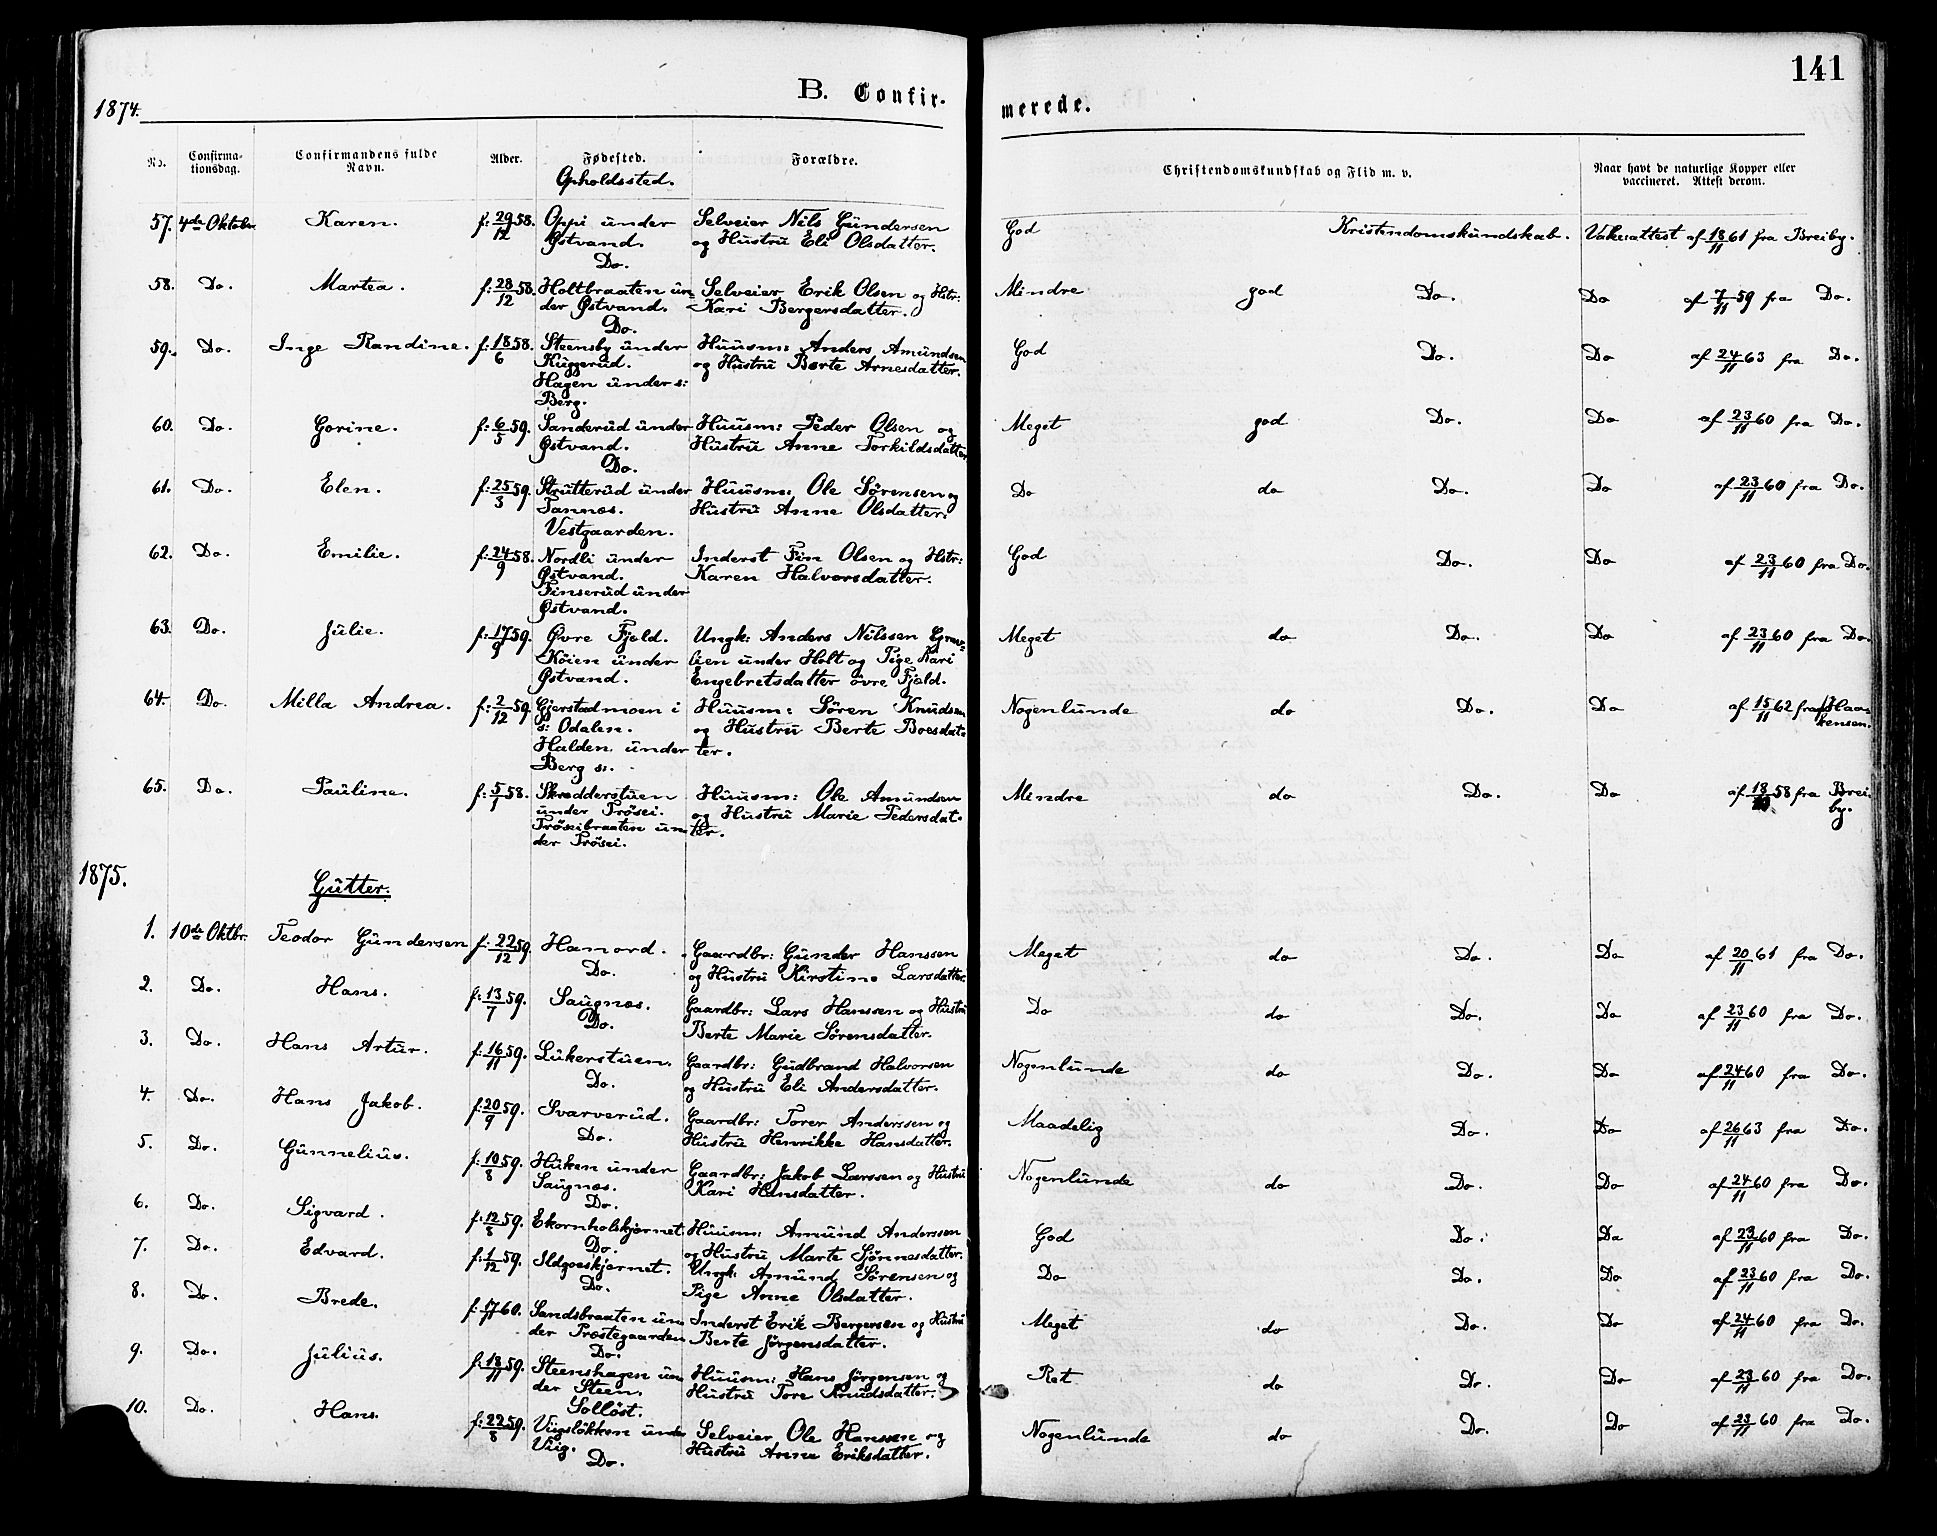 141
B. Confir-
merede.
1874.
No.
Confirma-
tionsdag.
Confirmandens fulde
Navn.
Alder.
Fødested.
Opholdssted.
Forældre.
Christendomskundskab og Flid m. v.
Naar havt de naturlige Kopper eller
vaccineret. Attest derom.
57. 4de Oktober Karen. f: 29/12 58. Oppi under Selveier Nils Gundersen God Kristendomskundskab. af 18/11 61 fra Breiby.
Østvand. og Hustru Eli Olsdatter.
Do.
58. Do. Martea. f: 28/12 58. Holtbraaten un- Selveier Erik Olsen og Hstr: Mindre god Do. Do af 7/11 59 fra Do.
der Østvand. Kari Bergersdatter.
Do.
59. Do. Inge Randine. f: 18/6 58. Steensby under Huusm: Anders Amundsen God Do. Do af 24/11 63 fra Do.
Kuggerud. og Hustru Berte Arnesdatter.
Hagen under s:
Berg.
60. Do. Gorine. f: 6/5 59. Sanderud under Huusm: Peder Olsen og Meget god Do. Do af 23/11 60 fra Do.
Østvand. Hustru Anne Torkildsdatter
Do.
61. Do. Elen. f: 25/3 59. Strutterud under Huusm: Ole Sørensen og Do do Do. Do af 23/11 60 fra Do.
Tannæs. Hustru Anne Olsdatter.
Vestgaarden.
62. Do. Emilie. f: 24/9 58. Nordli under Inderst Fin Olsen og Hstr: God Do. Do af 23/11 60 fra Do.
Østvand. Karen Halvorsdatter.
Finserud under
Østvand.
63. Do. Julie. f: 17/9 59. Øvre Fjeld. Ungk: Anders Nilssen Meget do Do. Do af 23/11 60 fra Do.
Køien under lien under Holt og Pige Kari
Østvand. Engebretsdatter øvre Fjeld.
64. Do. Milla Andrea. f: 2/12 59. Gjerstadmoen i Huusm: Sören Knudsen Nogenlunde do Do. Do af 15/11 62 fra Haa-
s: Odalen. og Hustru Berte Boesdat- kensen.
Halden under ter.
Berg s:.
65. Do. Pauline. f: 5/1 58. Skrædderstuen Huusm: Ole Amundsen Mindre do Do. Do af 18/ 58 fra Brei-
under Frøsei. og Hustru Marie Pedersdat- by.
Frøseibraaten un- ter.
der Frøsei.
1875.
Gutter.
1. 10de Oktbr. Teodor Gundersen f: 22/12 59. Hanord. Gaardbr: Gunder Hanssen Meget do Do. Do af 20/11 61 fra Do.
Do. og Hustru Kirstine Larsdatter.
2. Do. Hans. f: 13/7 59. Saugnæs. Gaardbr: Lars Hanssen og Hustru Do do Do. Do af 23/11 60 fra Do.
Do. Berte Marie Sørensdatter.
3. Do. Hans Artur. f: 16/11 59. Lukerstuen. Gaardbr: Gudbrand Halvorsen Nogenlunde do Do. Do af 24/11 60 fra Do.
Do. og Hustru Eli Andersdatter.
4. Do. Hans Jakob. f: 20/9 59. Svarverud. Gaardbr: Torer Anderssen og Maadelig Do. Do af 26/11 63 fra Do.
Do. Hustru Henrikke Hansdatter.
5. Do. Gunnelius. f: 10/8 59. Huken under Gaardbr: Jakob Larssen og Hustru Nogenlunde do Do. Do af 24/11 60 fra Do.
Saugnæs. Kari Hansdatter.
Do.
6. Do. Sigvard. f: 12/8 59. Ekornholskjernet. Huusm: Amund Anderssen God Do. Do af 23/11 60 fra Do.
Do. og Hustru Marte Gjønnesdatter.
7. Do. Edvard. f: 1/12 59. Ildgoeskjernet. Ungk: Amund Sørensen og Do Do. Do af 23/11 60 fra Do.
Do. Pige Anne Olsdatter.
8. Do. Brede. f: 17/11 60. Sandsbraaten un- Inderst Erik Bergersen og Hustru Meget do Do. Do af 24/11 60 fra Do.
der Præstegaarden Berte Jørgensdatter.
Do.
9. Do. Julius. f: 18/11 59. Steenshagen un- Huusm: Hans Jørgensen og Ret do Do. Do af 23/11 60 fra Do.
der Steen. Hustru Tore Knudsdatter.
Solløst.
10. Do. Hans. f: 22/8 59. Viigsløkken under Selveier Ole Hanssen og Nogenlunde do Do. Do af 23/11 60 fra Do.
Viig. Hustru Anne Eriksdatter.
Do.